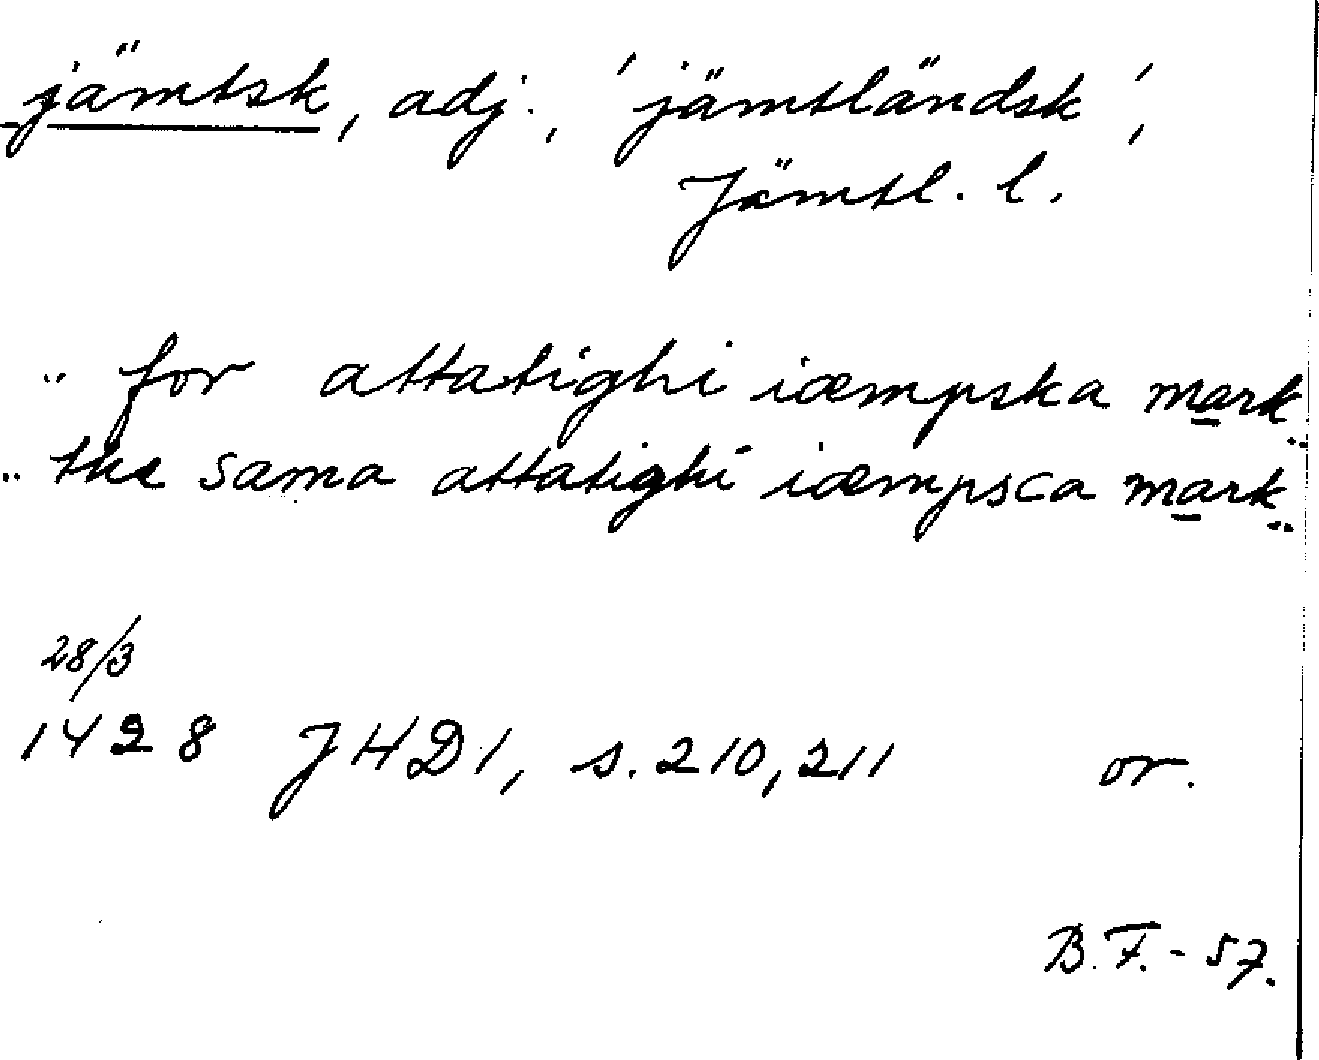 jämtsk, adj., 'jämtländsk',
Jämtl. l.
"for attatighi iæmpska mark"
"the sama attatighi iæmpsca mark"
28/3
1428 JHD1, s. 210, 211 or.
B.F. - 57.